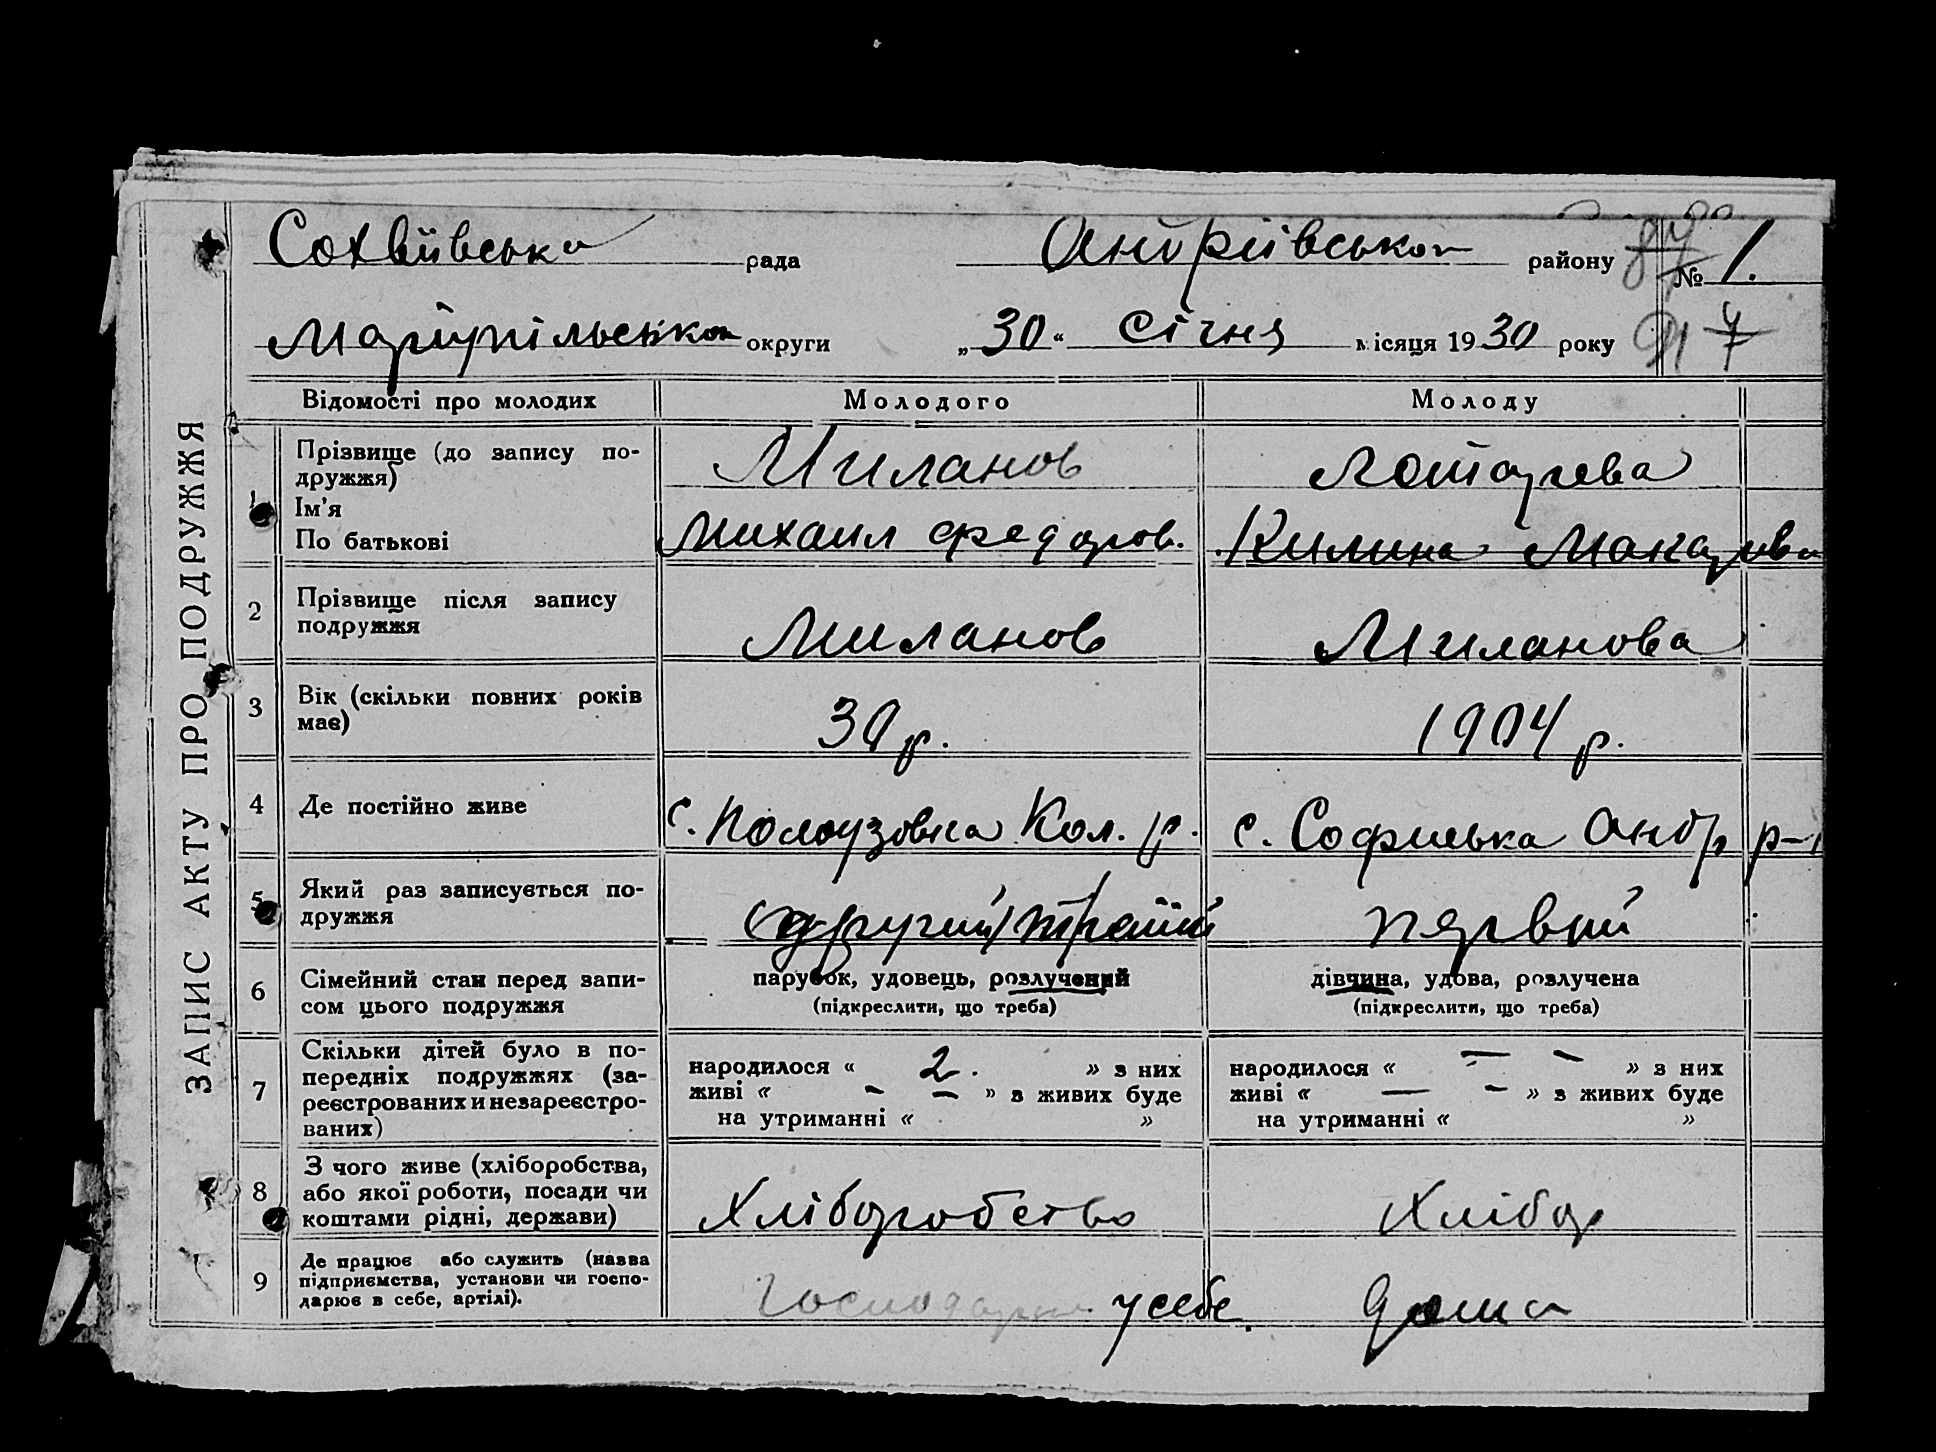 ЗАПИС АКТУ ПРО ПОДРУЖЖЯ
Сохвіївська рада Андріївськог району № 1.
Маріупільськог округи „30“ Січня місяця 1930 року
Відомості про молодих Молодого Молоду
1 Прізвище (до запису по-
дружжя) Миланов
Ім'я
По батькові Михаил Федоров. Килина Макарівна
2 Прізвище після запису
подружжя Миланов Миланова
3 Вік (скільки повних років
має) 30 р. 1904 р.
4 Де постійно живе с. Полоузовка Кол. р. с. Софиевка Андр р-н
5 Який раз записується по-
дружжя (другий) третій первий
6 Сімейний стан перед запи-
сом цього подружжя
парубок, удовець, розлучений дівчина, удова, розлучена
(підкреслити, що треба) (підкреслити, що треба)
7 Скільки дітей було в по-
передніх подружжях (за-
реєстрованих и незареєстро-
ваних)
народилося « 2. » з них народилося « — — » з них
живі « - — » з живих буде живі « — - » з живих буде
на утриманні « » на утриманні « »
8 З чого живе (хліборобства,
або якої роботи, посади чи
коштами рідні, держави) Хліборобство Хлібор
9 Де працює або служить (назва
підприємства, установи чи госпо-
дарює в себе, артілі). у себе. дома